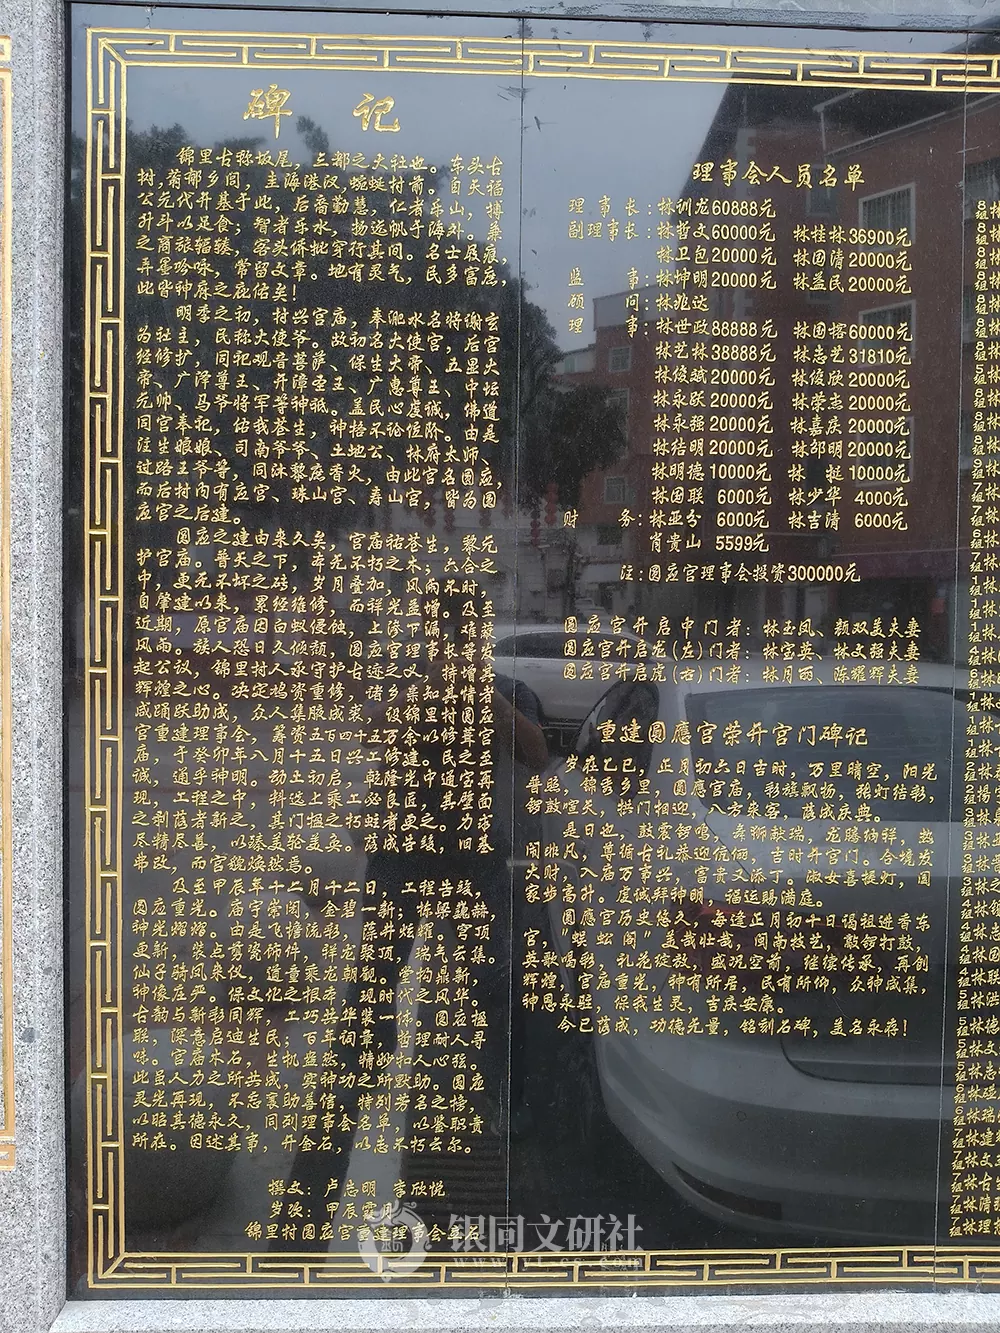 碑 记
锦里古称坂尾，三都之大社也。东头古
树，蓊郁乡间，圭海港汊，蜿蜒村前。自天福
公元代开基于此，后裔勤慧，仁者乐山，搏
升斗以足食；智者乐水，扬远帆于海外。兼
之商旅辐辏，客头侪批穿行其间。名士屐痕，
弄墨吟咏，常留文章。地有灵气，民多富庶，
此皆神庥之庇佑矣！
明季之初，村兴宫庙，奉淝水名将谢玄
为社主，民称大使爷。故初名大使宫，后宫
经修扩，同祀观音菩萨、保生大帝、五显大
帝、广泽尊王、开漳圣王、广惠尊王、中坛
元帅、马爷将军等神祇。盖民心虔诚，佛道
同宫奉祀，佑我苍生，神格不论位阶。由是
注生娘娘、司南爷爷、土地公、林府太师、
过路王爷等，同沐黎庶香火，由此宫名圆应，
而后村内有应宫、珠山宫、寿山宫，皆为圆
应宫之后建。
圆应之建由来久矣，宫庙祐苍生，黎元
护宫庙。普天之下，本无不朽之木；六合之
中，更无不坏之砖，岁月叠加，风雨不时，
自肇建以来，累经维修，而祥光益增。及至
近期，原宫庙因白蚁侵蚀，上渗下漏，难蔽
风雨。族人恐日久倾颓，圆应宫理事长等发
起公议，锦里村人永守护古迹之义，持增其
辉煌之心。决定捣资重修，诸乡亲知其情者
咸踊跃助成，众人集腋成裘，设锦里村圆应
宫重建理事会，筹资五百四十五万余以修葺宫
庙，于癸卯年八月十五日兴工修建。民之至
诚，通乎神明。动土初启，乾隆光中通宝再
现，工程之中，料选上乘工必良匠，其壁面
之剥落者新之，其门楹之朽蛀者更之。力求
尽精尽善，以臻美轮美奂。落成告竣，旧基
弗改，而宫貌焕然焉。
及至甲辰年十二月十二日，工程告竣，
圆应重光。庙宇崇闳，金碧一新；栋梁巍赫，
神光熠熠。由是飞檐流彩，藻井炫耀。宫顶
更新，装点剪瓷饰件，祥龙聚顶，瑞气云集。
仙子骑凤来仪，道童乘龙朝觐。堂构鼎新，
神像庄严。保文化之根本，现时代之风华。
古韵与新彩同辉，工巧共华装一体。圆应楹
联，深意启迪生民；百年词章，哲理耐人寻
味。宫庙木石，生机盎然，精妙扣人心弦。
此虽人力之所共成，实神功之所默助。圆应
灵光再现，不忘襄助善信，特列芳名之榜，
以昭其德永久，同列理事会名单，以鉴职责
所在。因述其事，开金石，以志不朽云尔。
撰文：卢志明 李欣悦
岁次：甲辰霞月
锦里村圆应宫重建理事会立石
理事会人员名单
理 事 长：林训龙60888元
副理事长：林哲文60000元 林桂林36900元
林卫包20000元 林国清20000元
监 事：林坤明20000元 林益民20000元
顾 问：林兆达
理 事：林世政88888元 林国榕60000元
林艺林38888元 林志艺31810元
林俊斌20000元 林俊欣20000元
林永跃20000元 林荣杰20000元
林永强20000元 林嘉庆20000元
林结明20000元 林邵明20000元
林明德10000元 林 挺10000元
林国联 6000元 林少华 4000元
财 务：林亚分 6000元 林吉清 6000元
肖贵山 5599元
注：圆应宫理事会投资300000元
圆应宫开启中门者：林玉凤、颜双美夫妻
圆应宫开启龙(左)门者：林宫英、林文强夫妻
圆应宫开启虎(右)门者：林月丽、陈耀辉夫妻
重建圆應宫荣升宫门碑记
岁在乙巳，正月初六日吉时，万里晴空，阳光
普照，锦秀乡里，圆應宫庙，彩旗飘扬，张灯结彩，
锣鼓喧天，拱门相迎，八方来客，落成庆典。
是日也，鼓震锣鸣，舞狮献瑞，龙腾纳祥，热
闹非凡，尊循古礼恭迎伉俪，吉时升宫门。合境发
大财，入庙万事兴，富贵又添丁。淑女喜提灯，阖
家步高升。虔诚拜神明，福运赐满庭。
圆應宫历史悠久，每逢正月初十日福祖进香东
宫，“蜈蚣阁”美哉壮哉，闽南技艺，敲锣打鼓，
英歌喝彩，礼花绽放，盛况空前，继续传承，再创
辉煌，宫庙重光，神有所居，民有所仰，众神咸集，
神恩永驻，保我生灵，吉庆安康。
今已落成，功德无量，铭刻石碑，美名永存！
银同文研社